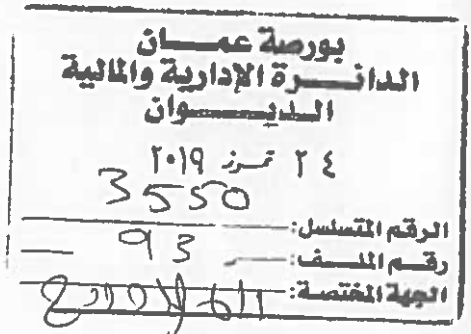 بورصة عمـــان
الدائـــرة الإدارية والمالية
الـديـــــوان
٢٤ تمـوز ٢٠١٩
3550
الرقم المتسلسل:
رقـم الملـف: 93
الجهة المختصة: